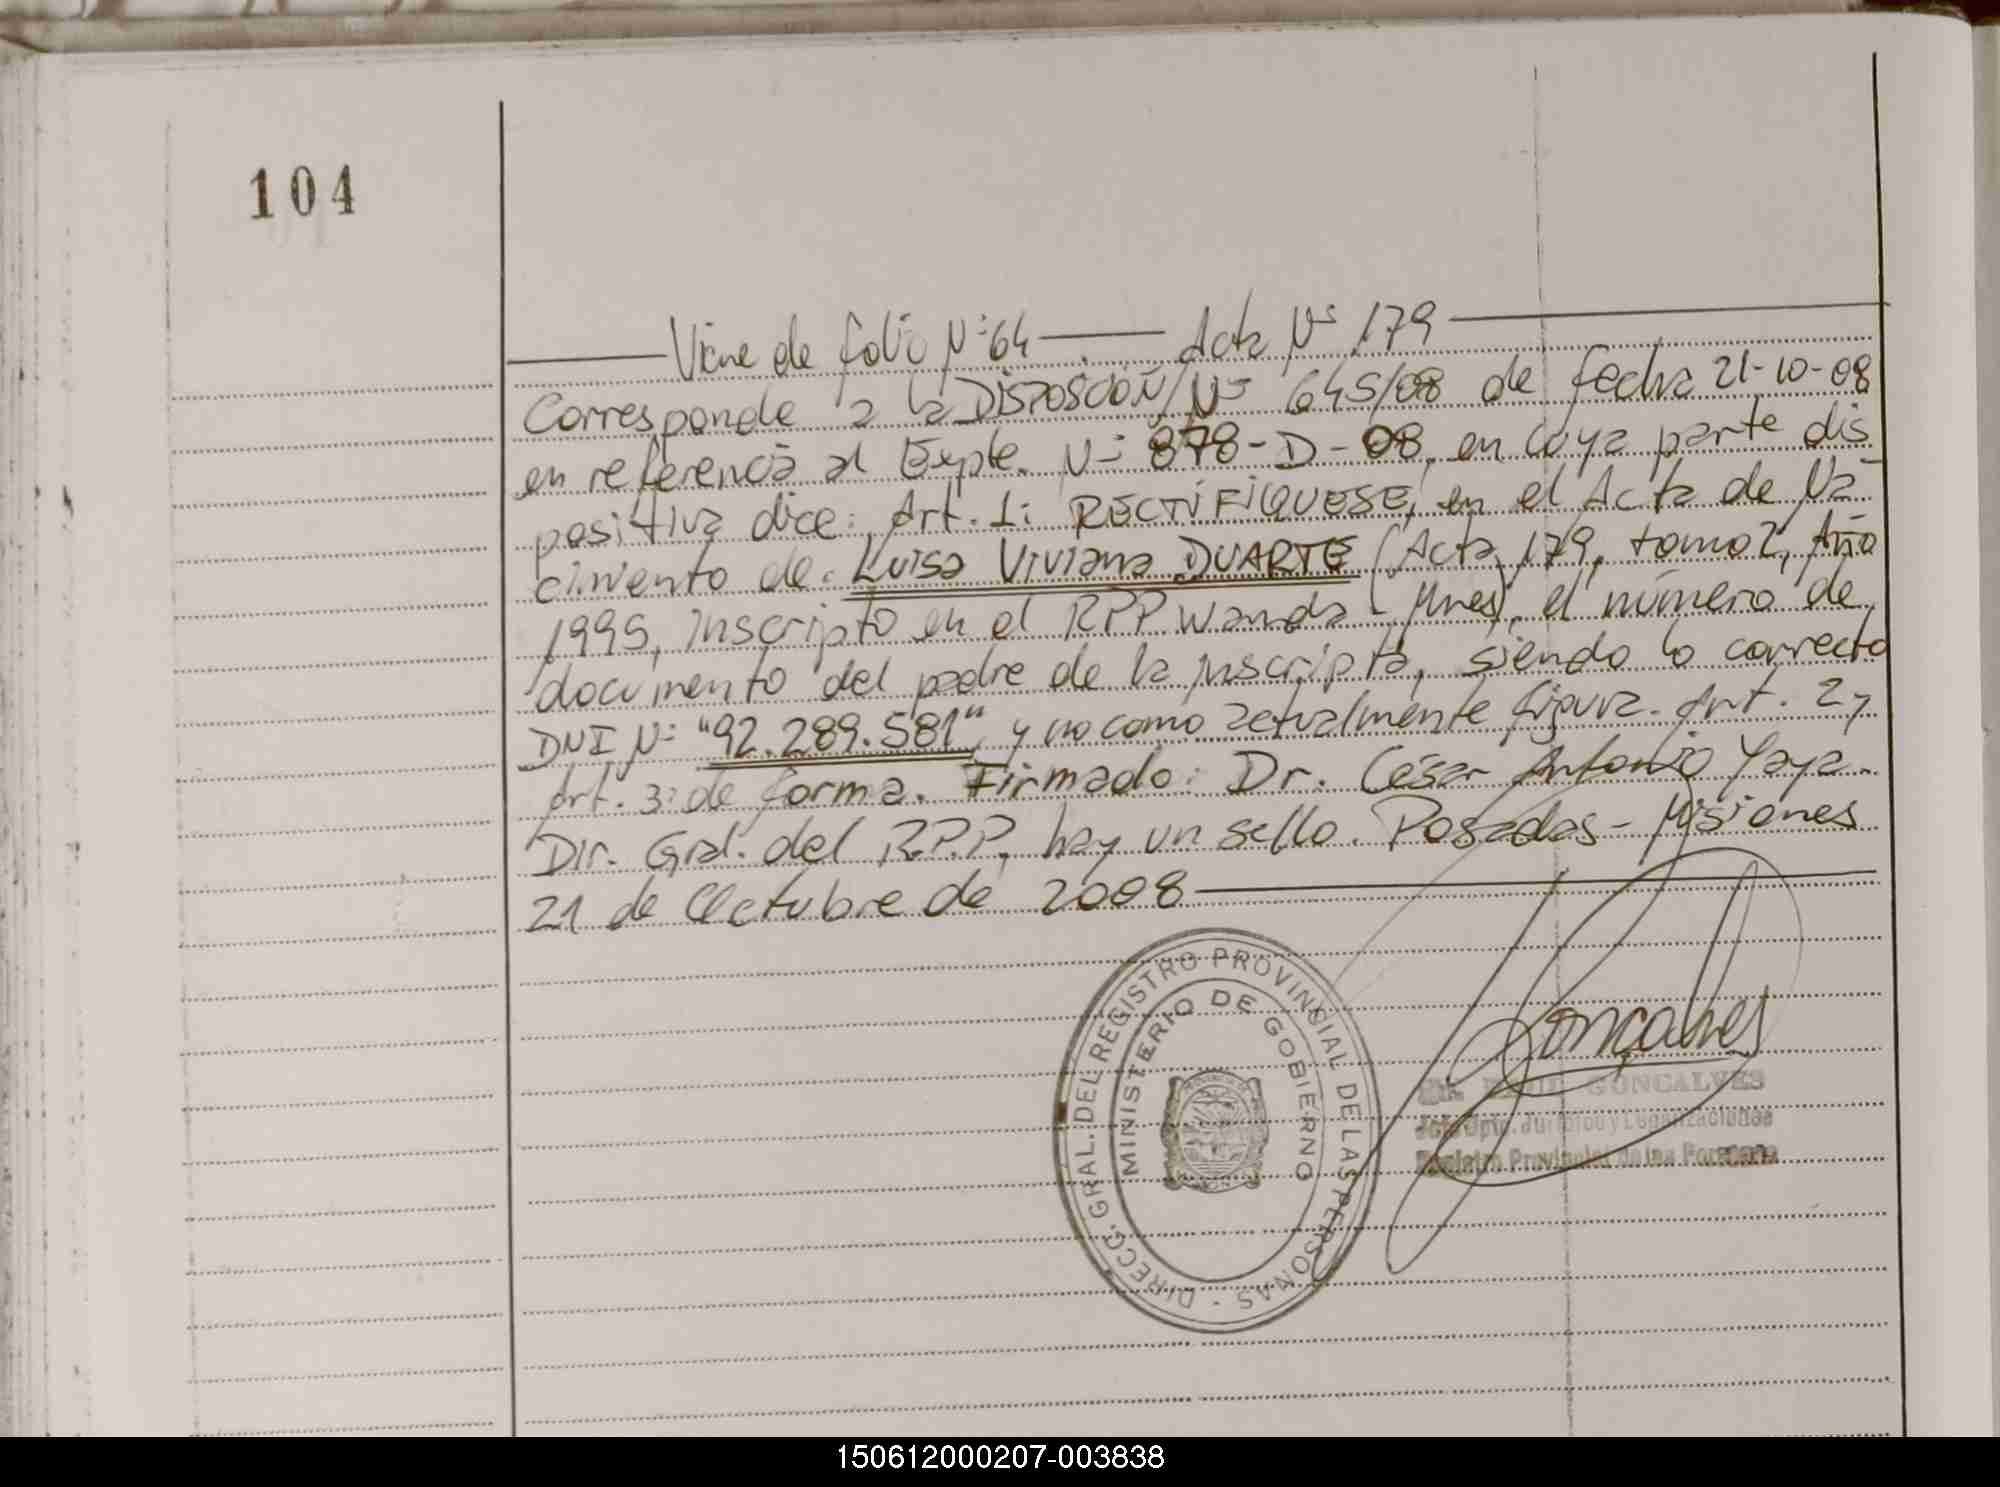 104
Viene de folio Nº 64 Acta Nº 179
Corresponde a la DISPOSCIÓN Nº 645/08 de fecha 21-10-08
en referencia al Expte. Nº 878-D-08, en cuya parte dis
positiva dice: Art. 1: RECTIFIQUESE, en el Acta de Na-
cimiento de: Luisa Viviana DUARTE (Acta 179, tomo 2, Año
1995, inscripto en el RPP Wanda - Mnes), el número de
documento del padre de la inscripta, siendo lo correcto
DNI Nº "92.289.581" y no como actualmente figura. Art. 2 y
Art. 3: de forma. Firmado: Dr. César Antonio Yaya.
Dir. Gral. del R.P.P. hay un sello. Posadas - Misiones
21 de Octubre de 2008
DIRECC. GRAL. DEL REGISTRO PROVINCIAL DE LAS PERSONAS
MINISTERIO DE GOBIERNO
Goncalves
GONCALVES
Jefe Dpto. Jurídico y Legalizaciones
Registro Provincial de las Personas
150612000207-003838